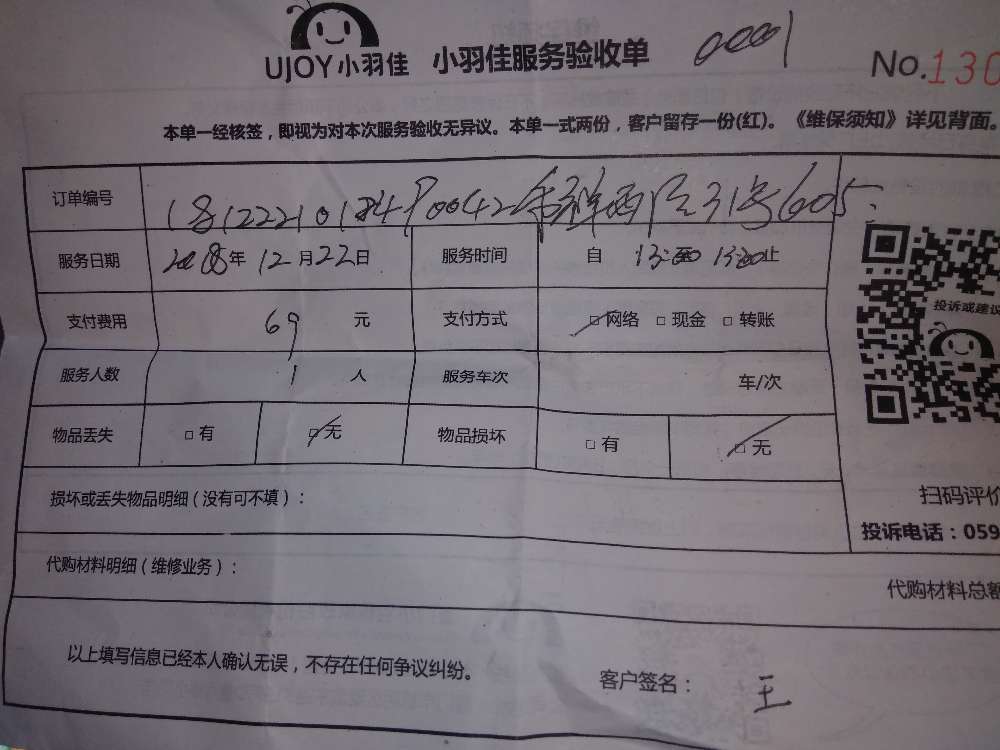 UJOY小羽佳 小羽佳服务验收单 0001 No.130
本单一经核签，即视为对本次服务验收无异议。本单一式两份，客户留存一份(红)。《维保须知》详见背面。
订单编号 西 31号605
服务日期 2018年12月22日 服务时间 自 止
支付费用 69 元 支付方式 □网络 □现金 □转账
投诉或建议
服务人数 1 人 服务车次 车/次
物品丢失 □有 □无 物品损坏 □有 □无
损坏或丢失物品明细（没有可不填）：
扫码评价
投诉电话：059
代购材料明细（维修业务）：
代购材料总额
以上填写信息已经本人确认无误，不存在任何争议纠纷。
客户签名： 王